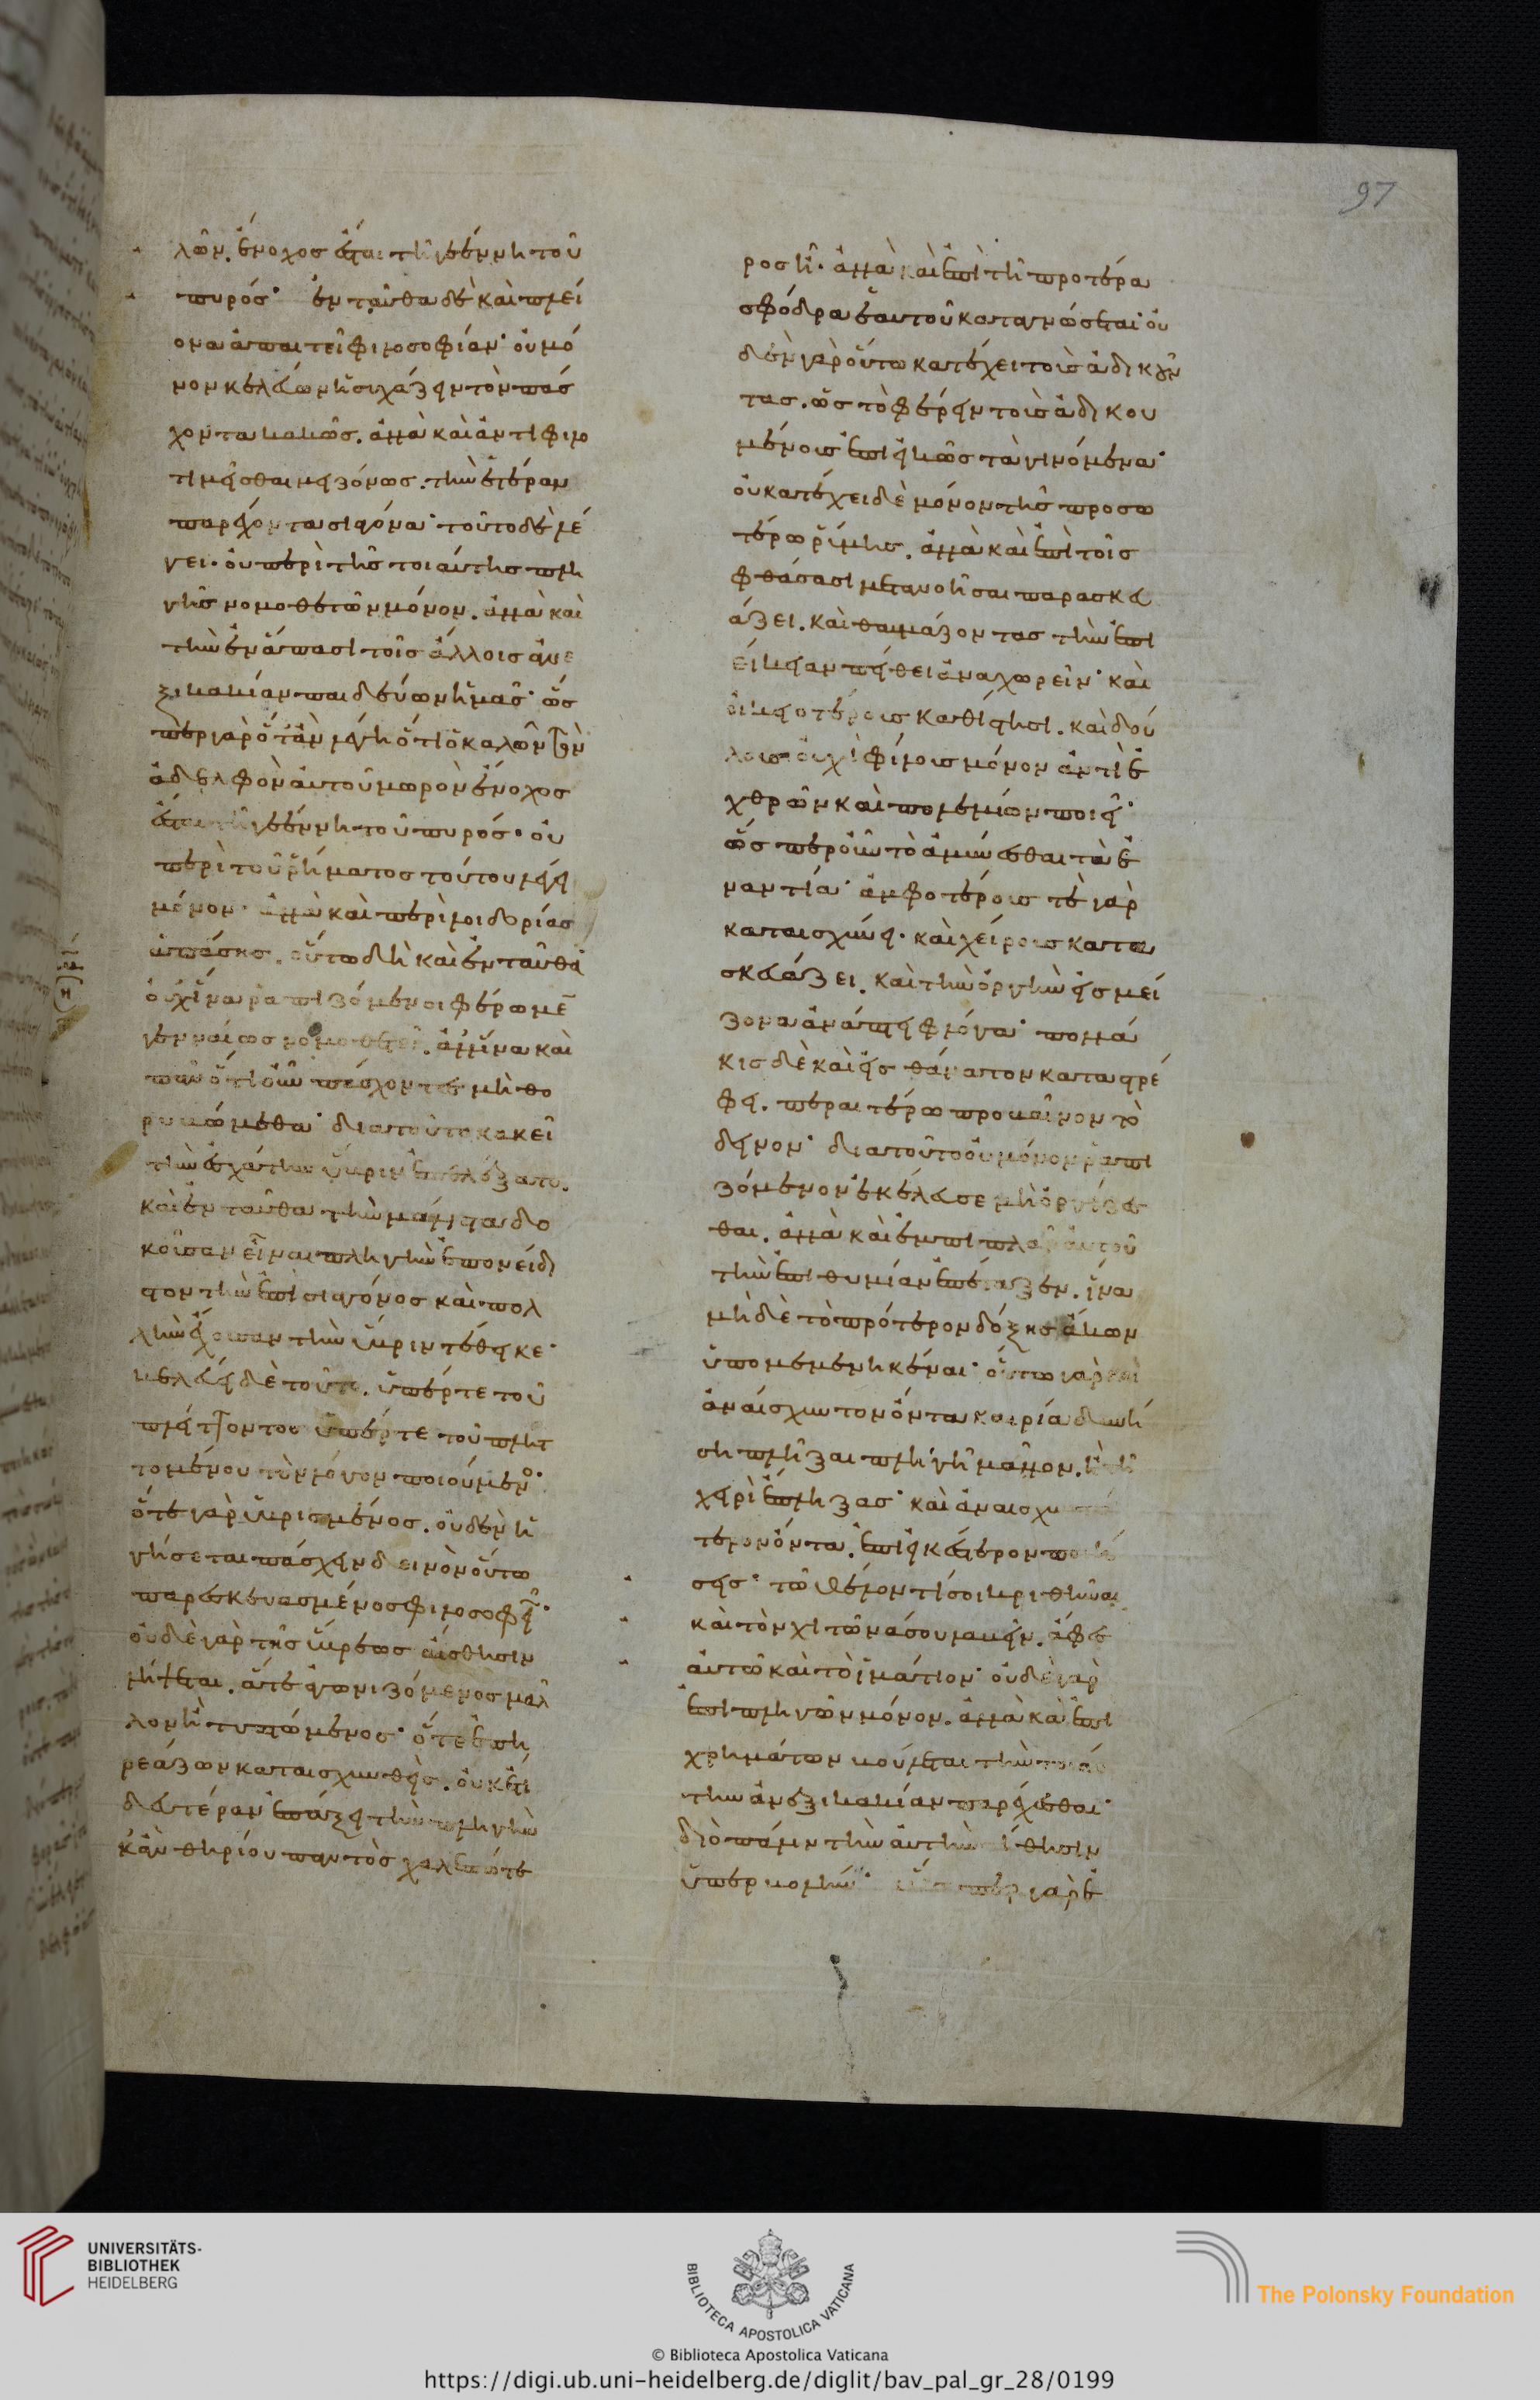 97
λῶν. ἔνοχος ἔσται τῆ γεέννη τοῦ
πυρός· ἐνταῦθα δὲ καὶ πλεί
ονα ἀπαιτεῖ φιλοσοφίαν· οὐ μό
νον κελεύων ἡσυχάζειν τὸν πάσ
χοντα κακῶς. ἀλλὰ καὶ ἀντιφιλο
τιμεῖσθαι μειζόνως. τὴν ἑτέραν
παρέχοντα σιαγόνα· τοῦτο δὲ λέ
γει. οὐ περὶ τῆς τοιαύτης πλη
γῆς νομοθετῶν μόνον. ἀλλὰ καὶ
τὴν ἐν ἅπασι τοῖς ἄλλοις ἀνε
ξικακίαν παιδεύων ἡμᾶς· ὥσ
περ γὰρ ὅταν λέγη ὅτι ὁ καλῶν τὸν
ἀδελφὸν αὐτοῦ μωρὸν ἔνοχος
ἔσται τῆ γεέννη τοῦ πυρός· οὐ
περὶ τοῦ ῥήματος τούτου λέγει
μόνον. ἀλλὰ καὶ περὶ λοιδορίας
ἁπάσης. οὕτω δὴ καὶ ἐνταῦθα
οὐχ ἵνα ῥαπιζόμενοι φέρωμεν
γενναίως νομοθετεῖ. ἀλλ' ἵνα καὶ
πᾶν ὁτιοῦν πάσχοντες μὴ θο
ρυβώμεθα· διὰ τοῦτο κἀκεῖ
τὴν ἐσχάτην ὕβριν ἐπελέξατο.
καὶ ἐνταῦθα τὴν μάλιστα δο
κοῦσαν εἶναι πληγὴν ἐπονείδι
στον τὴν ἐπὶ σιαγόνος καὶ πολ
λὴν ἔχουσαν τὴν ὕβριν τέθεικε·
κελεύει δὲ τοῦτο. ὑπέρ τε τοῦ
πλήττοντος ὑπέρ τε τοῦ πλητ
τομένου τὸν λόγον ποιούμενος·
ὅ τε γὰρ ὑβρισμένος. οὐδὲν ἡ
γήσεται πάσχειν δεινὸν οὕτω
παρεσκευασμένος φιλοσοφεῖν·
οὐδὲ γὰρ τῆς ὕβρεως αἴσθησιν
λήψεται. ἅτε ἀγωνιζόμενος μᾶλ
λον ἢ τυπτόμενος· ὅ τε ἐπη
ρεάζων καταισχυνθείς. οὐκέτι
δευτέραν ἐπάξει τὴν πληγὴν
κἂν θηρίου παντὸς χαλεπώτε
ρος ἦ. ἀλλὰ καὶ ἐπὶ τῆ προτέρα
σφόδρα ἑαυτοῦ καταγνώσεται· οὐ
δὲν γὰρ οὕτω κατέχει τοὺς ἀδικοῦν
τας. ὡς τὸ φέρειν τοὺς ἀδικου
μένους ἐπιεικῶς τὰ γινόμενα·
οὐ κατέχει δὲ μόνον τῆς προσω
τέρω ῥύμης. ἀλλὰ καὶ ἐπὶ τοῖς
φθάσασι μετανοῆσαι παρασκευ
άζει. καὶ θαυμάζοντας τὴν ἐπι
είκειαν πείθει ἀναχωρεῖν· καὶ
οἰκειοτέρους καθίστησι. καὶ δού
λους οὐχὶ φίλους μόνον ἀντὶ ἐ
χθρῶν καὶ πολεμίων ποιεῖ·
ὥσπερ οὖν τὸ ἀμύνεσθαι τὰ ἐ
ναντία· ἀμφοτέρους τε γὰρ
καταισχύνει. καὶ χείρους κατα
σκευάζει. καὶ τὴν ὀργὴν εἰς μεί
ζονα ἀνάπτει φλόγα· πολλά
κις δὲ καὶ εἰς θάνατον καταστρέ
φει. περαιτέρω προβαῖνον τὸ
δεινόν· διὰ τοῦτο οὐ μόνον ῥαπι
ζόμενον ἐκέλευσε μὴ ὀργίζεσ
θαι. ἀλλὰ καὶ ἐμπιπλᾶν αὐτοῦ
τὴν ἐπιθυμίαν ἐπέταξεν. ἵνα
μηδὲ τὸ πρότερον δόξης ἄκων
ὑπομεμενηκέναι· οὕτω γὰρ καὶ
ἀναίσχυντον ὄντα καιρία δυνή
ση πλῆξαι πληγῆ μᾶλλον. ἢ εἰ τῆ
χειρὶ ἔπληξας· καὶ ἀναισχυντό
τερον ὄντα. ἐπιεικέστερον ποιή
σεις· τῶ θέλοντί σοι κριθῆναι
καὶ τὸν χιτῶνά σου λαβεῖν. ἄφες
αὐτῶ καὶ τὸ ἱμάτιον· οὐδὲ γὰρ
ἐπὶ πληγῶν μόνον. ἀλλὰ καὶ ἐπὶ
χρημάτων βούλεται τὴν τοιαύ
την ἀνεξικακίαν παρέχεσθαι·
διὸ πάλιν τὴν αὐτὴν τίθησιν
ὑπερβολήν· ὥσπερ γὰρ ἐ
UNIVERSITÄTS-
BIBLIOTHEK
HEIDELBERG
BIBLIOTECA APOSTOLICA VATICANA
The Polonsky Foundation
© Biblioteca Apostolica Vaticana
https://digi.ub.uni-heidelberg.de/diglit/bav_pal_gr_28/0199